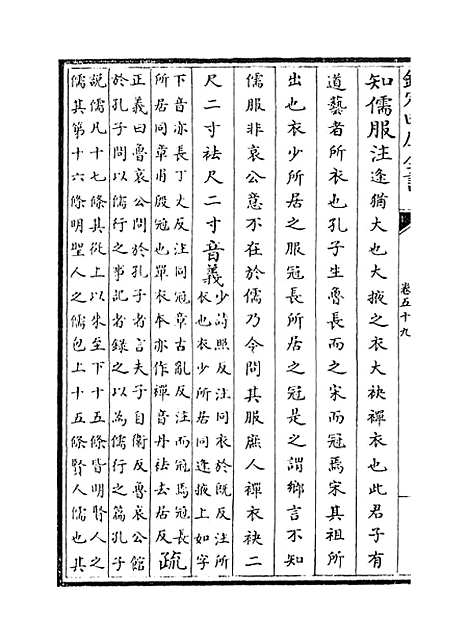 欽定四庫全書
卷五十九
知儒服注逢猶大也大掖之衣大袂襌衣也此君子有
道藝者所衣也孔子生魯長而之宋而冠焉宋其祖所
出也衣少所居之服冠長所居之冠是之謂鄉言不知
儒服非哀公意不在於儒乃今問其服庶人襌衣袂二
尺二寸袪尺二寸音義
少詩照反注同衣於既反注所
衣也衣少所居同逢掖上如字
下音亦長丁丈反注同冠章古亂反注而冠焉冠長
所居同章甫殷冠也單衣本亦作襌音丹袪去居反
疏
正義曰魯哀公問於孔子者言夫子自衛反魯哀公館
於孔子問以儒行之事記者錄之以為儒行之篇孔子
說儒凡十七條其從上以來至下十五條皆明賢人之
儒其第十六條明聖人之儒包上十五條賢人儒也其